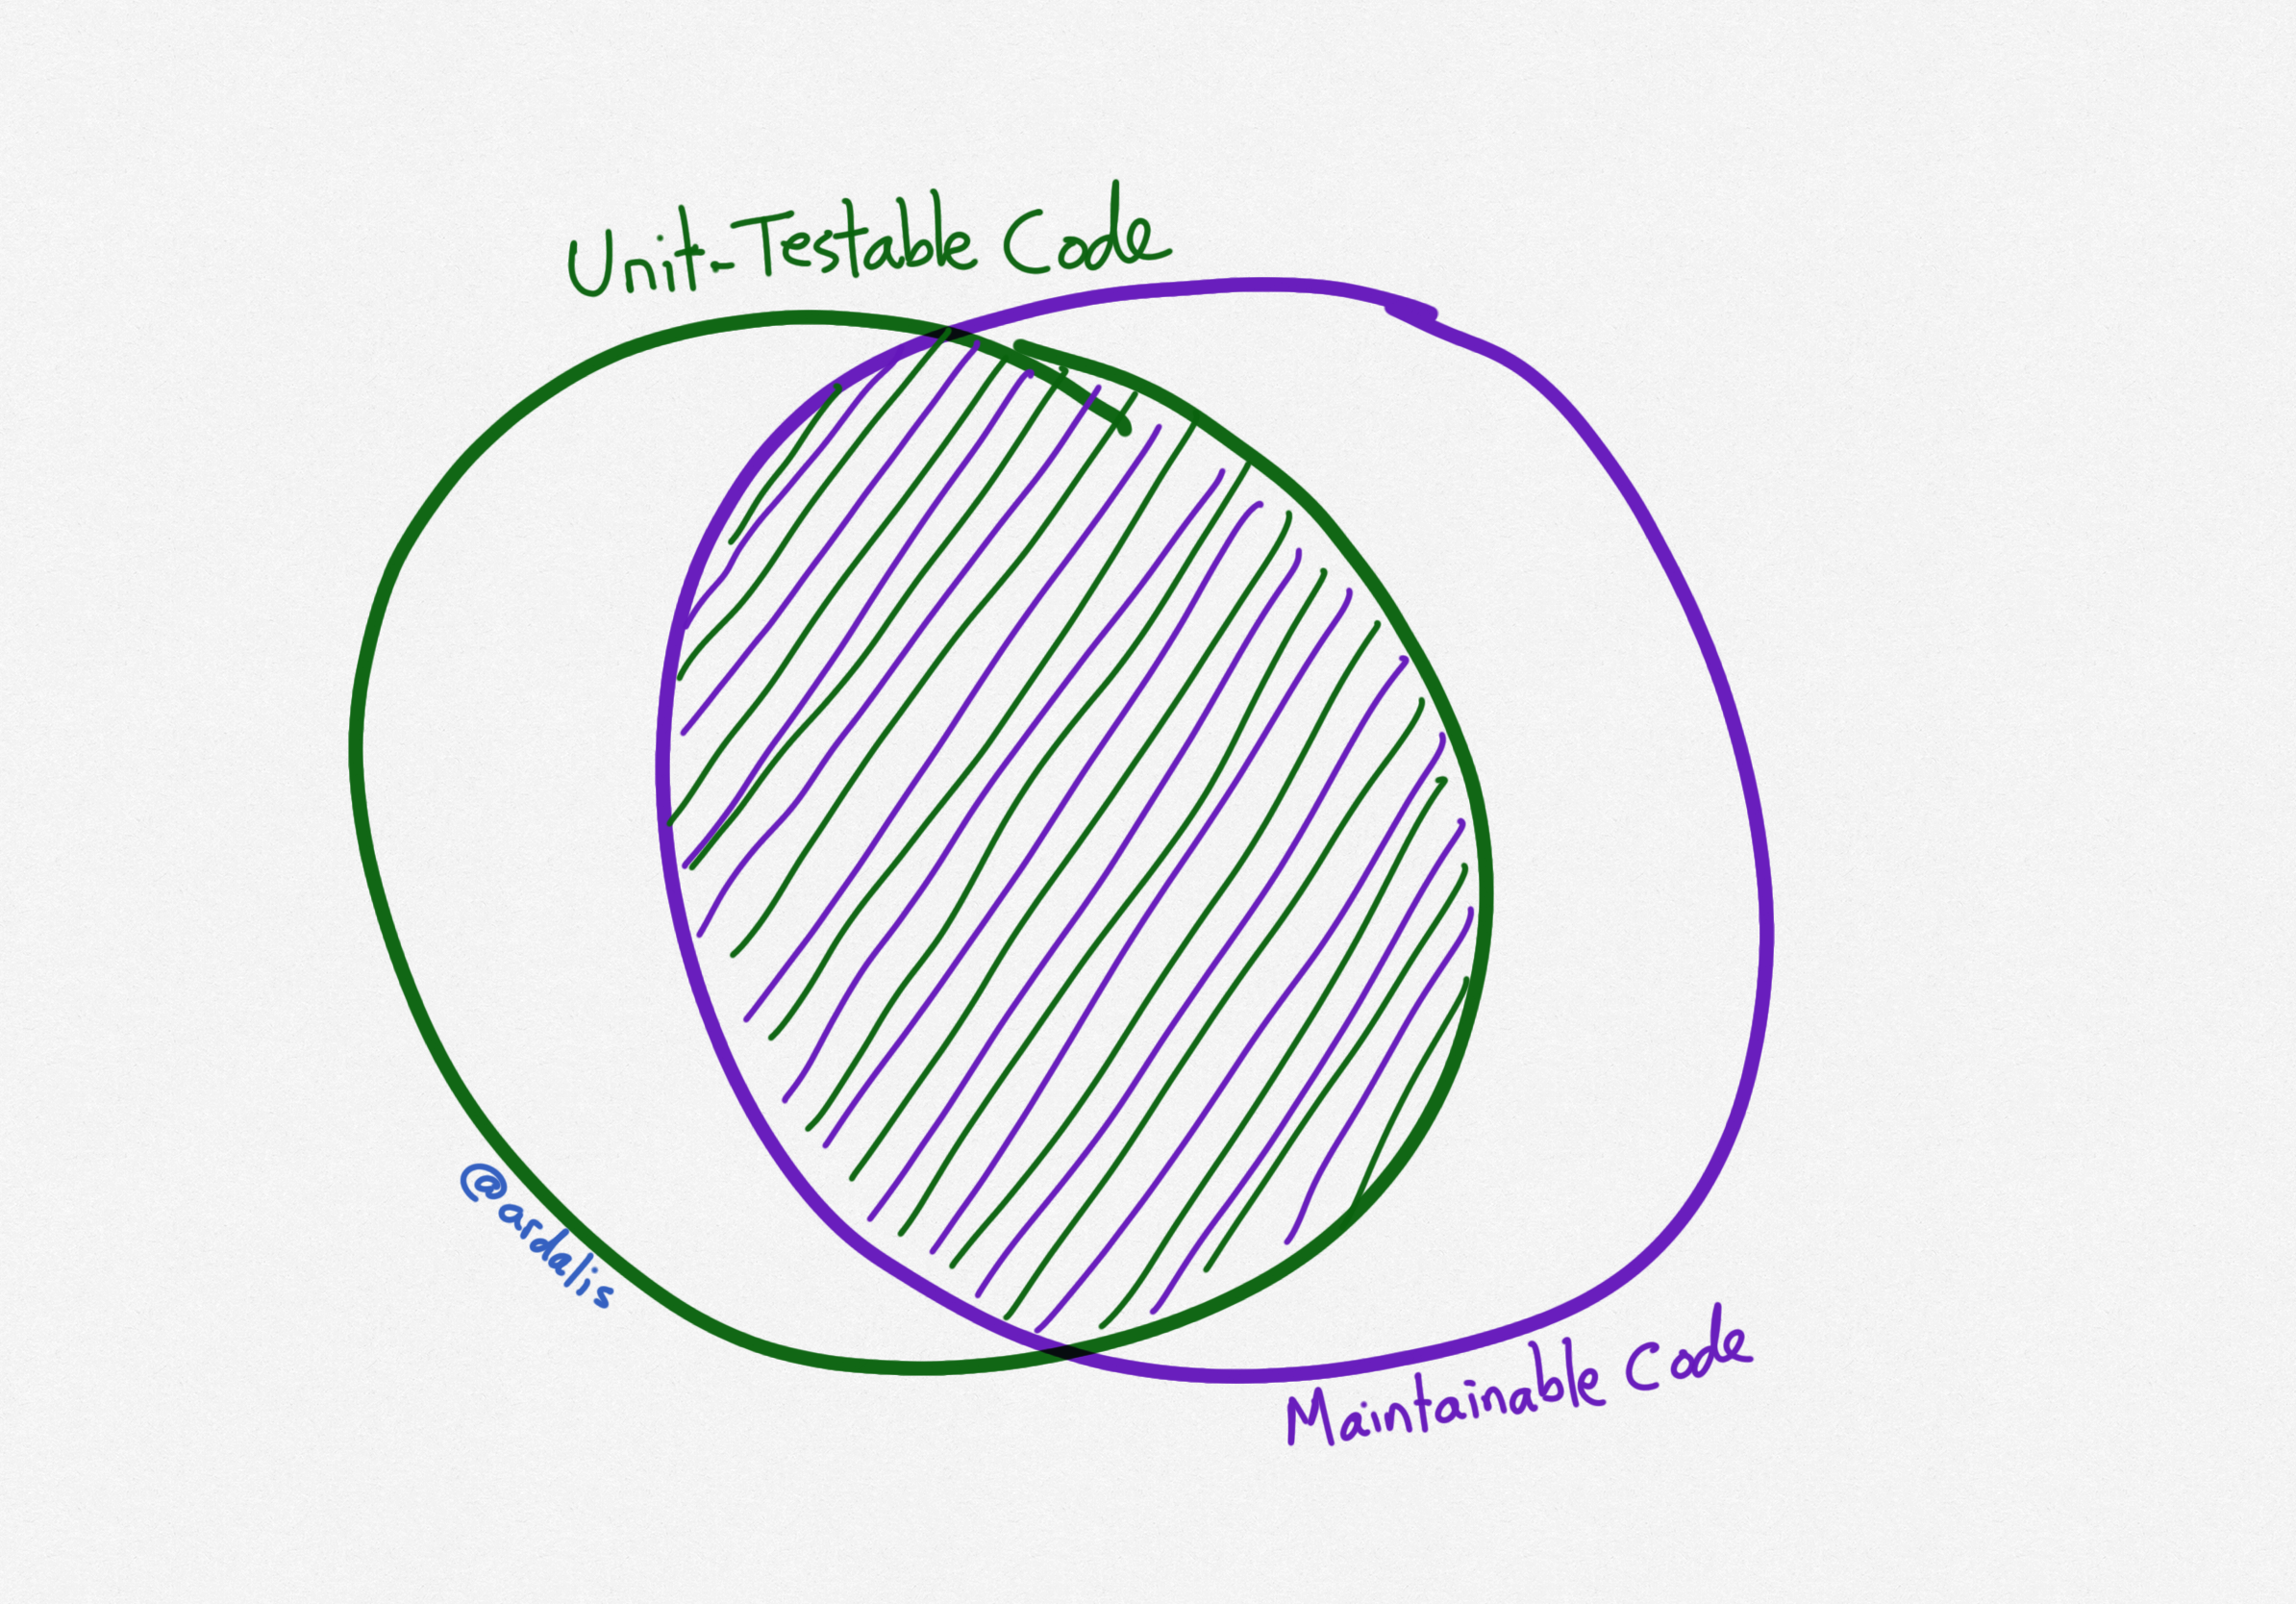 Unit-Testable Code
@ardalis
Maintainable Code